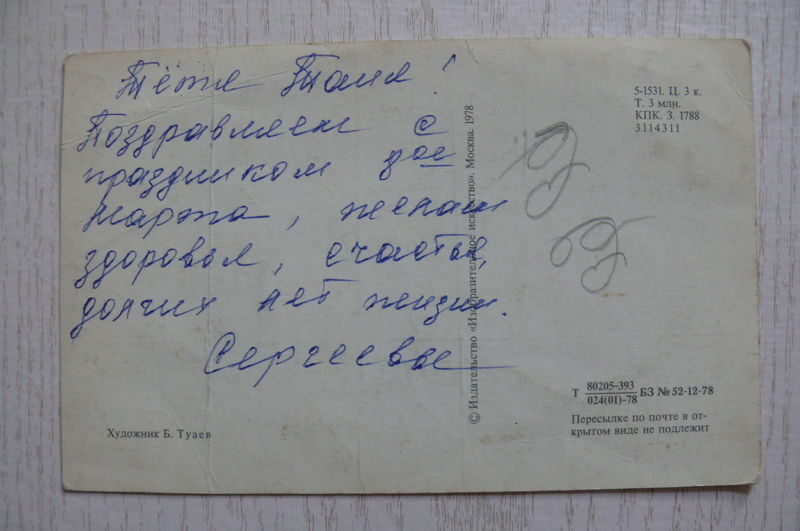 Тётя Таня!
Поздравляем с
праздником 8ое
марта, желаем
здоровья, счастья,
долгих лет жизни.
Сергеевы
Художник Б. Туаев
© Издательство «Изобразительное искусство». Москва. 1978
5-1531. Ц. 3 к.
Т. 3 млн.
КПК. З. 1788
3114311
Т 80205-393
024(01)-78 БЗ № 52-12-78
Пересылке по почте в от-
крытом виде не подлежит